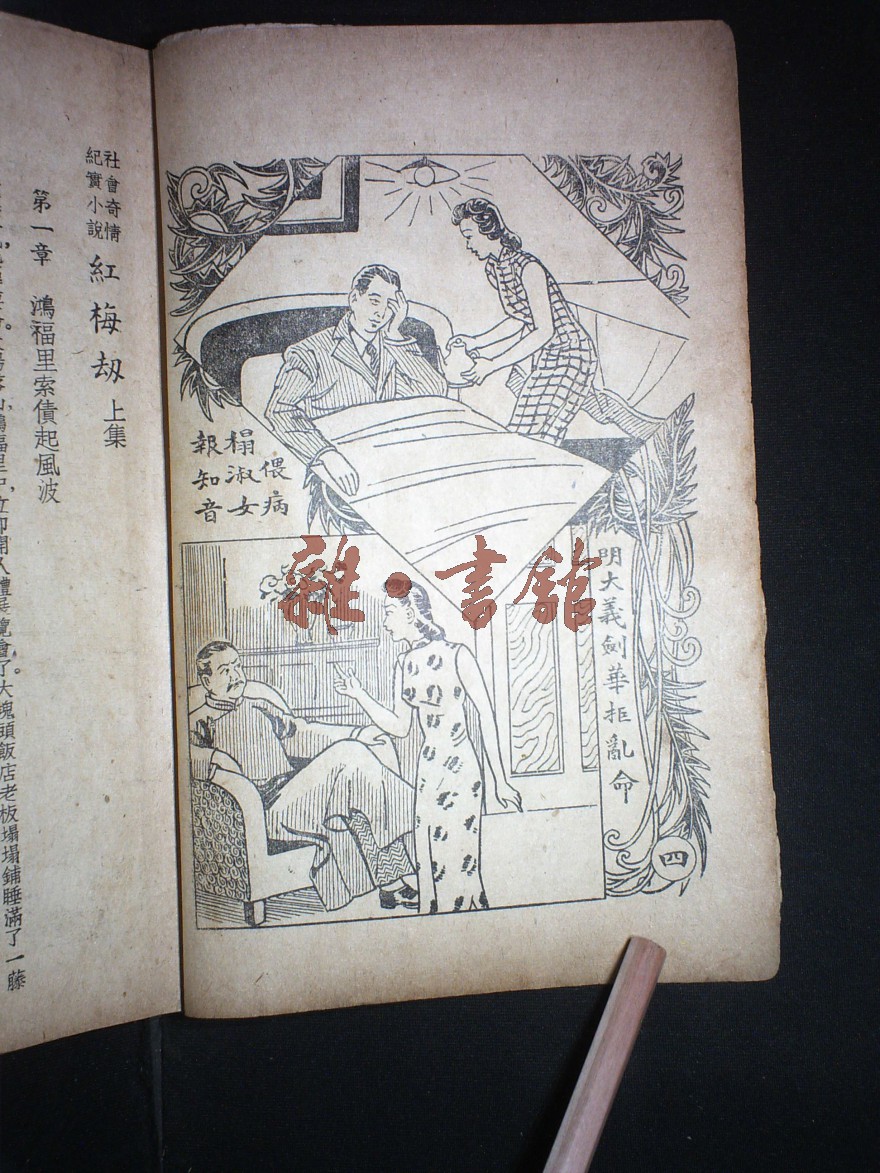 偎病榻淑女報知音
明大義劍華拒亂命
四
社會奇情
紀實小說
紅梅劫 上集
第一章 鴻福里索債起風波
了大塊頭飯店老板塌塌鋪睡滿了一藤
雜·書館